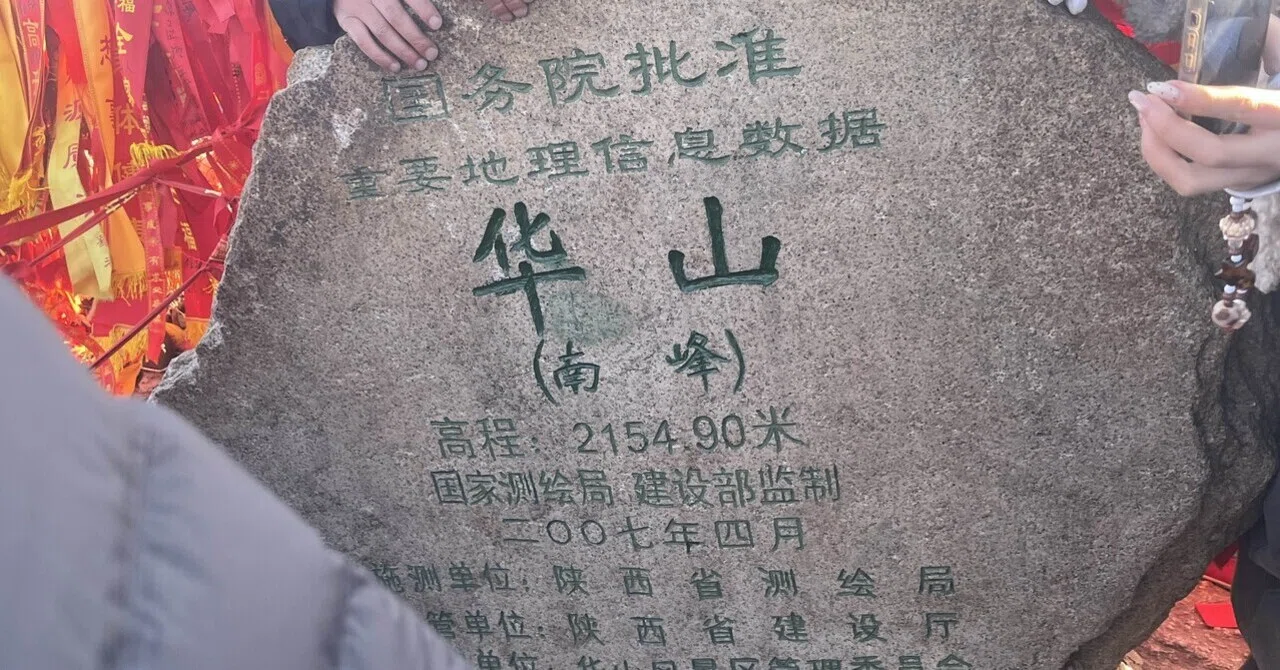 国务院批准
重要地理信息数据
华山
(南峰)
高程：2154.90米
国家测绘局 建设部监制
二〇〇七年四月
施测单位：陕西省测绘局
管单位：陕西省建设厅
单位：华山风景区管理委员会
福
全
体